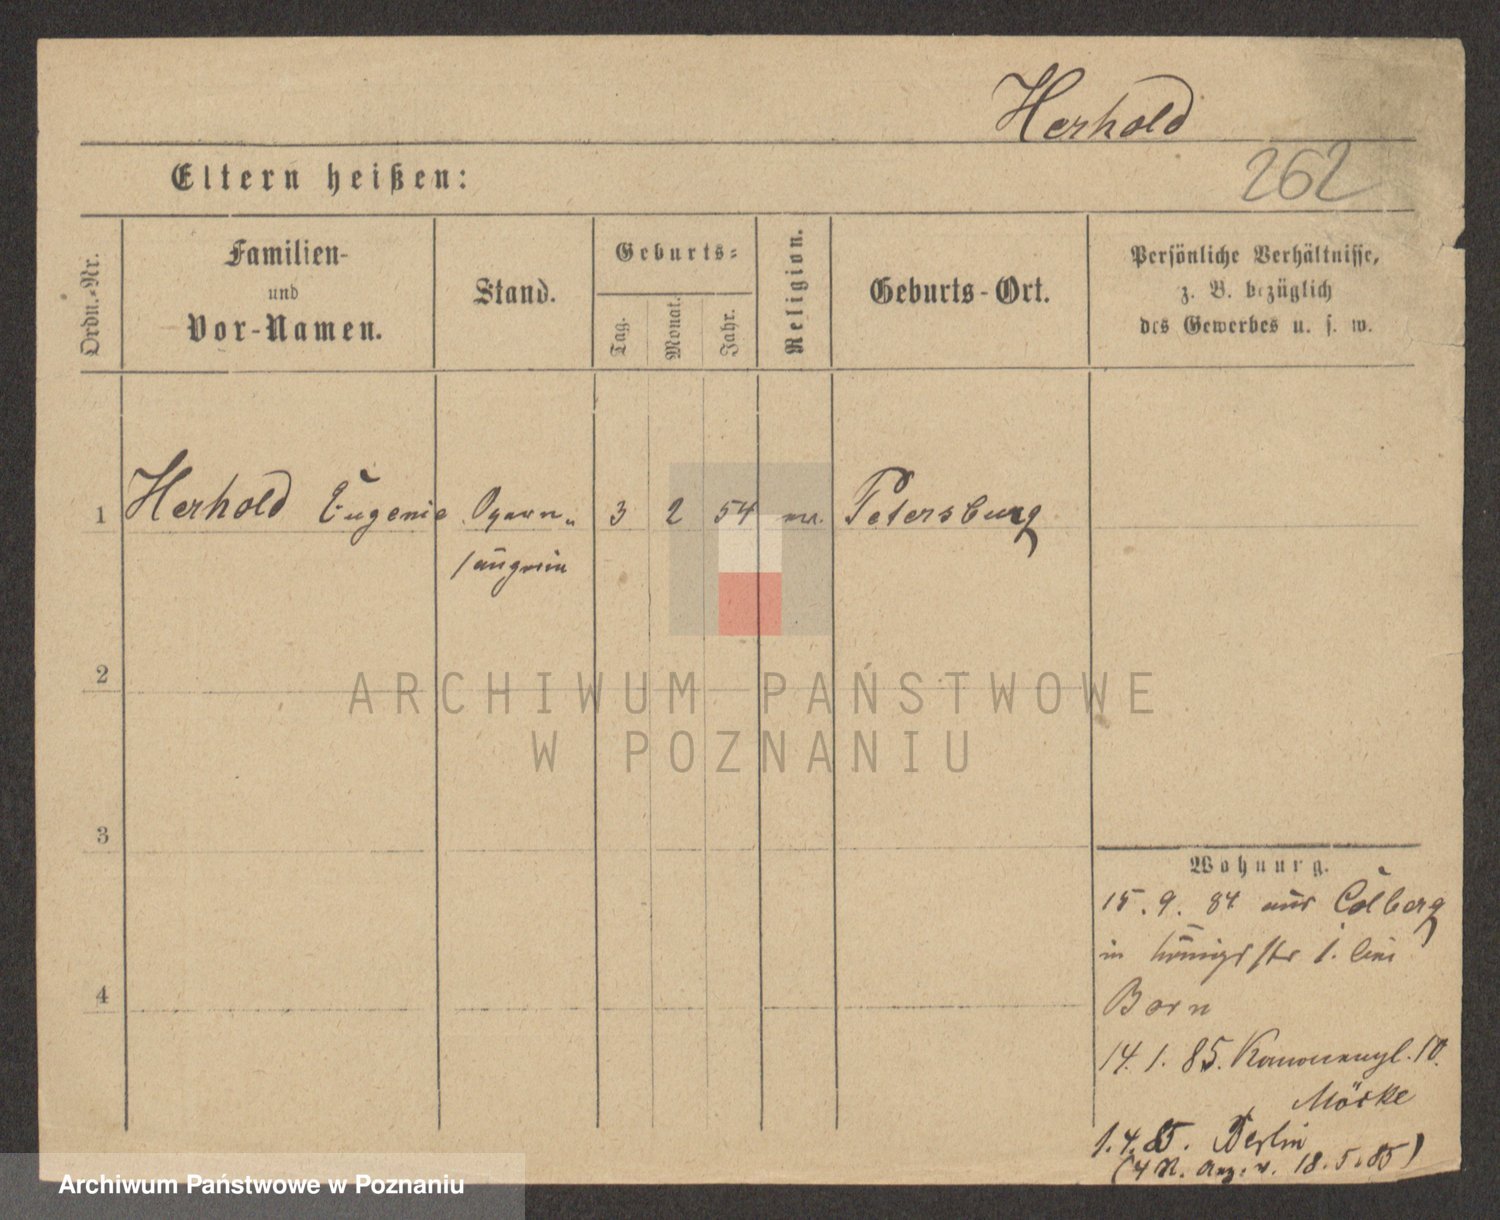 Herhold
262
Eltern heißen:
Ordn.-Nr.
Familien-
und
Vor-Namen.
Stand.
Geburts-
Tag.
Monat.
Jahr.
Religion.
Geburts-Ort.
Persönliche Verhältnisse,
z. B. bezüglich
des Gewerbes u. s. w.
1 Herhold Eugenie Opern- 3 2 54 Petersburg
sängerin
2
3
4
Wohnung.
15. 9. 84 aus Colberg
in Königsstr 1. bei
Born
14. 1. 85. Kanonenpl. 10.
1. 4. 85. Berlin
(4 N. Anz. v. 18. 5. 85)
ARCHIWUM PAŃSTWOWE
W POZNANIU
Archiwum Państwowe w Poznaniu